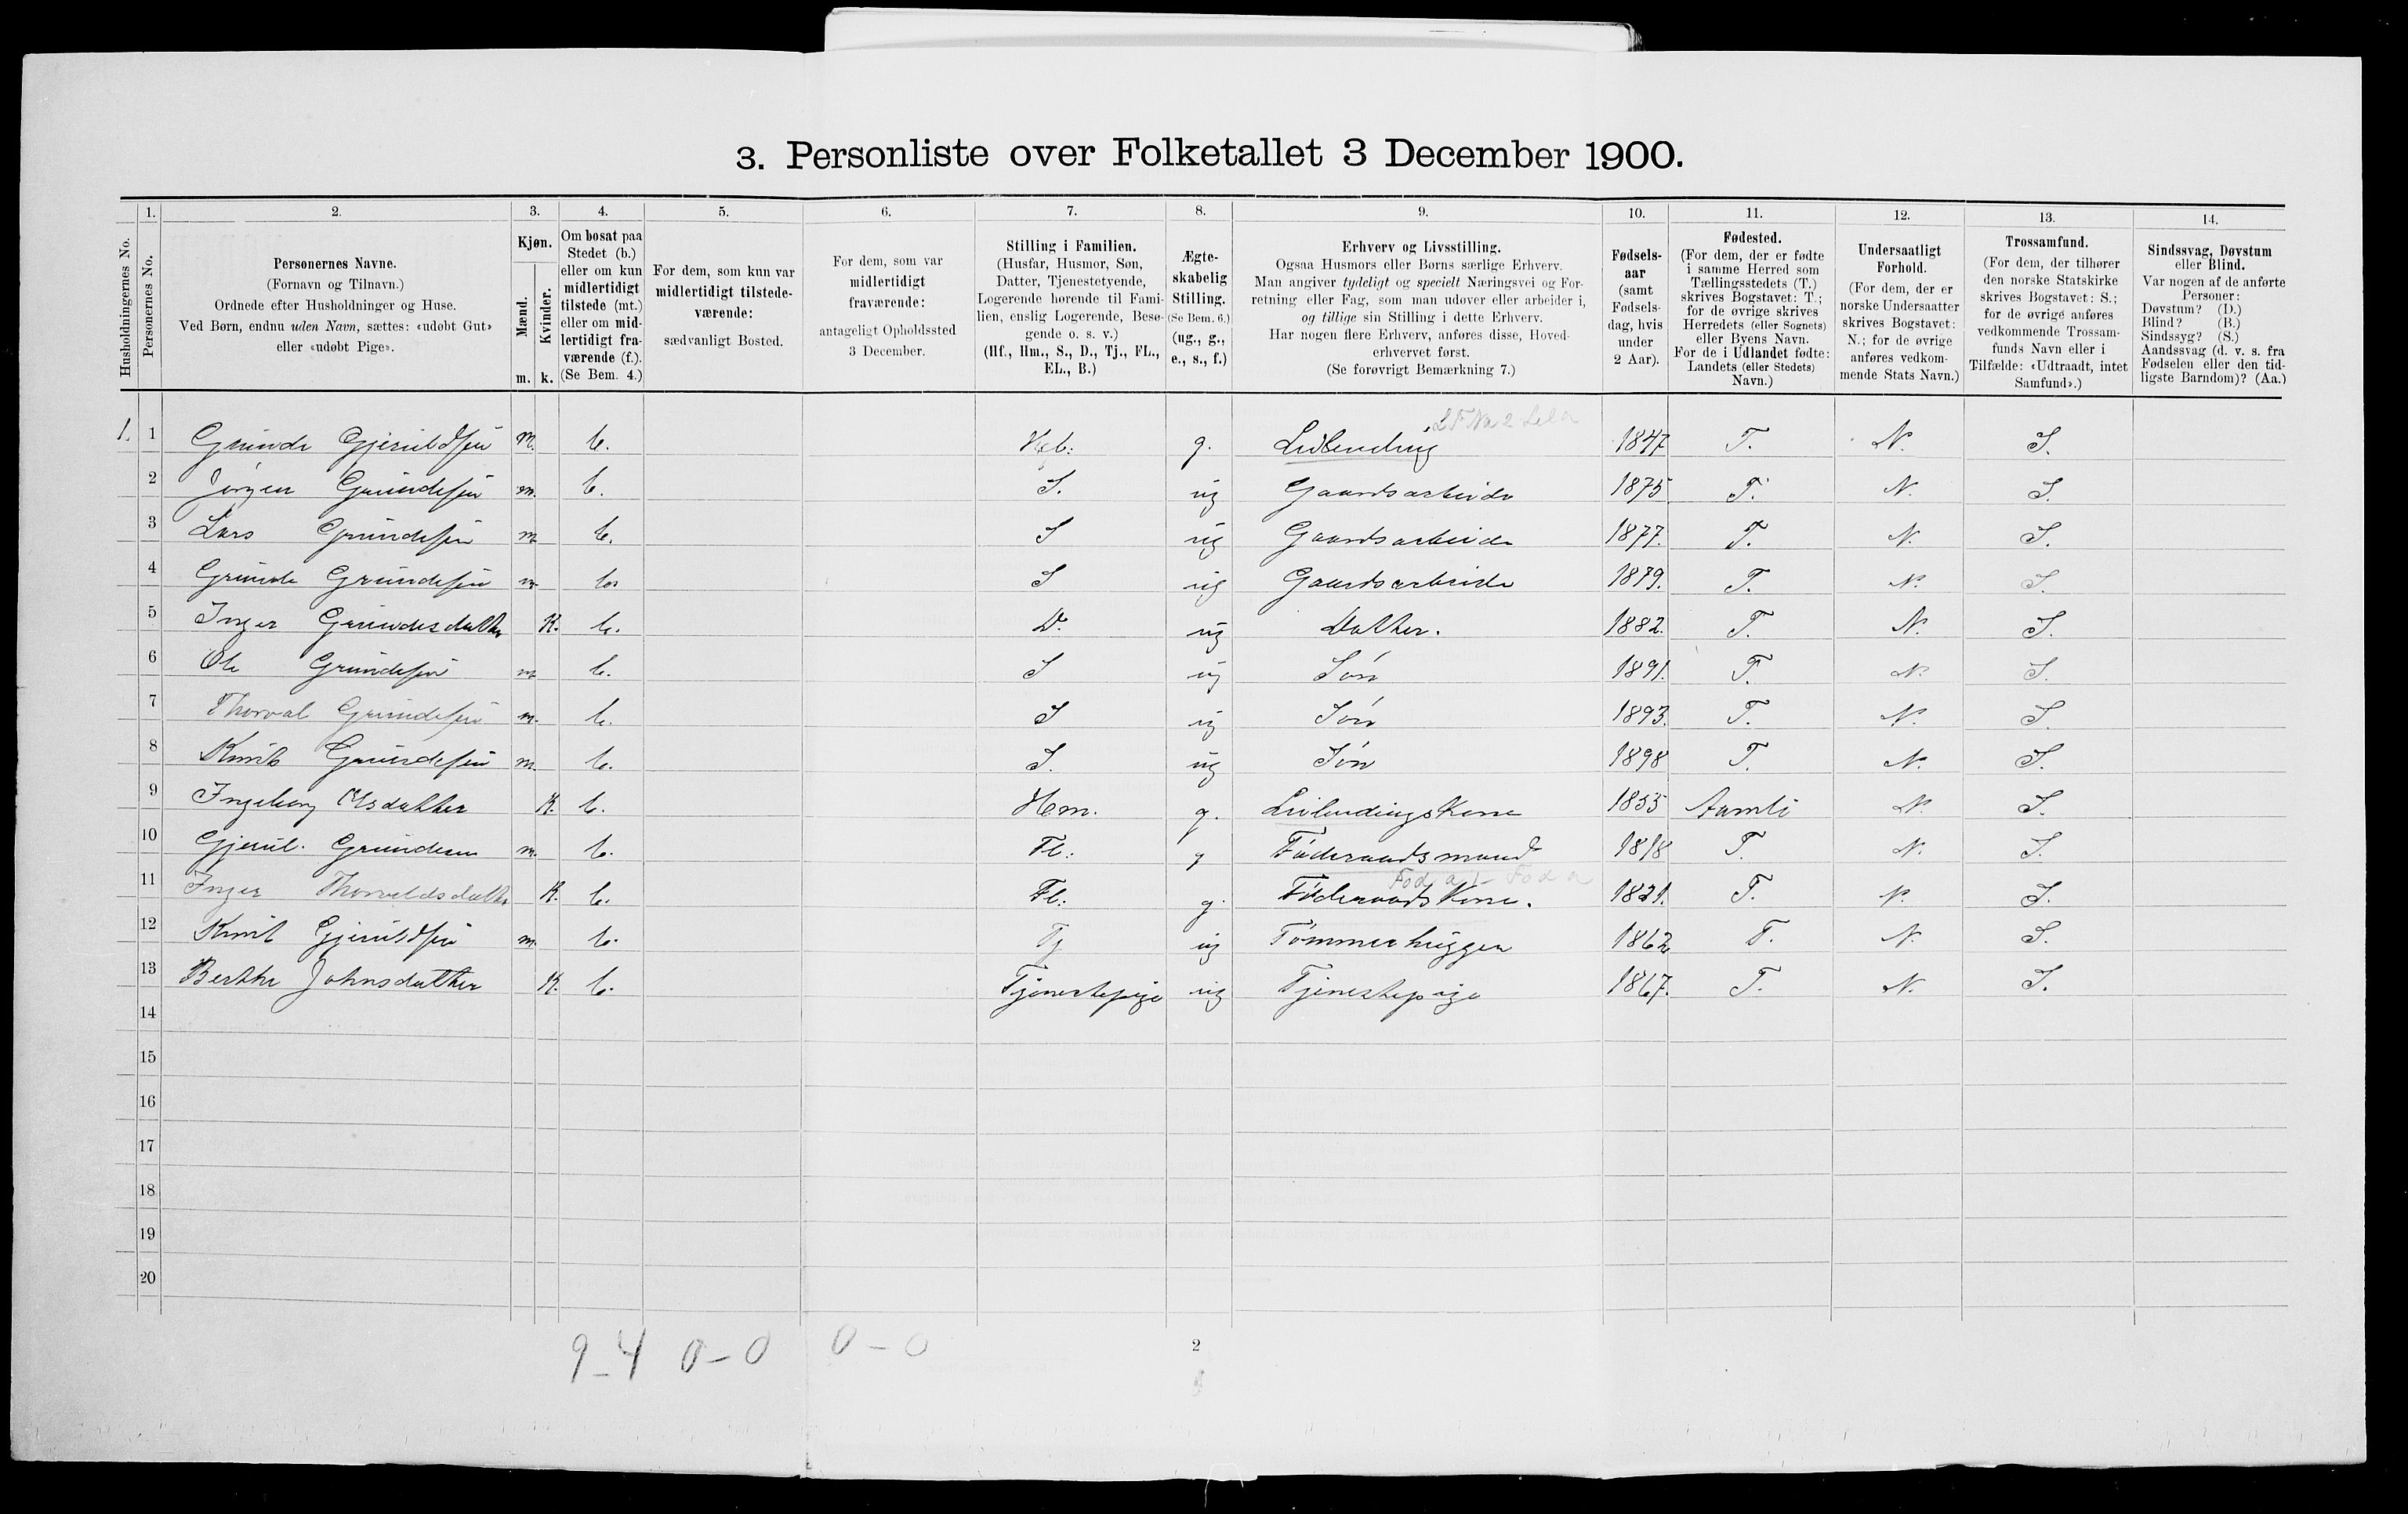 3. Personliste over Folketallet 3 December 1900.
1. 2. 3. 4. 5. 6. 7. 8. 9. 10. 11. 12. 13. 14.
Husholdningernes No.
Personernes No.
Personernes Navne.
(Fornavn og Tilnavn.)
Ordnede efter Husholdninger og Huse.
Ved Børn, endnu uden Navn, sættes: «udøbt Gut»
eller «udøbt Pige».
Kjøn.
Mænd.
Kvinder.
m. k.
Om bosat paa
Stedet (b.)
eller om kun
midlertidigt
tilstede (mt.)
eller om mid-
lertidigt fra-
værende (f.).
(Se Bem. 4.)
For dem, som kun var
midlertidigt tilstede-
værende:
sædvanligt Bosted.
For dem, som var
midlertidigt
fraværende:
antageligt Opholdssted
3 December.
Stilling i Familien.
(Husfar, Husmor, Søn,
Datter, Tjenestetyende,
Logerende hørende til Fami-
lien, enslig Logerende, Besø-
gende o. s. v.)
(Hf., Hm., S., D., Tj., FL.,
EL., B.)
Ægte-
skabelig
Stilling.
(Se Bem. 6.)
(ug., g.,
e., s., f.)
Erhverv og Livsstilling.
Ogsaa Husmors eller Børns særlige Erhverv.
Man angiver tydeligt og specielt Næringsvei og For-
retning eller Fag, som man udøver eller arbeider i,
og tillige sin Stilling i dette Erhverv.
Har nogen flere Erhverv, anføres disse, Hoved-
erhvervet først.
(Se forøvrigt Bemærkning 7.)
Fødsels-
aar
(samt
Fødsels-
dag, hvis
under
2 Aar).
Fødested.
(For dem, der er fødte
i samme Herred som
Tællingsstedets (T.)
skrives Bogstavet: T.;
for de øvrige skrives
Herredets (eller Sognets)
eller Byens Navn.
For de i Udlandet fødte:
Landets (eller Stedets)
Navn.)
Undersaatligt
Forhold.
(For dem, der er
norske Undersaatter
skrives Bogstavet:
N.; for de øvrige
anføres vedkom-
mende Stats Navn.)
Trossamfund.
(For dem, der tilhører
den norske Statskirke
skrives Bogstavet: S.;
for de øvrige anføres
vedkommende Trossam-
funds Navn eller i
Tilfælde: «Udtraadt, intet
Samfund».)
Sindssvag, Døvstum
eller Blind.
Var nogen af de anførte
Personer:
Døvstum? (D.)
Blind? (B.)
Sindssyg? (S.)
Aandssvag (d. v. s. fra
Fødselen eller den tid-
ligste Barndom)? (Aa.)
1. 1 Grunde Gjeruldsen m. b. g. 1847 T. N. S.
2 Jørgen Grundesen m. b. S. ug Gaardsarbeide 1875 T. N. S.
3 Lars Grundesen m b. S ug Gaardsarbeide 1877. T. N. S.
4 Grunde Grundesen m b. S ug Gaardsarbeide 1879. T. N. S.
5 Inger Grundesdatter K. b. D. ug Datter. 1882. T. N. S.
6 Ole Grundesen m b. S ug Søn 1891. T. N. S.
7 Thorval Grundesen m. b. S ug Søn 1893. T. N. S.
8 Knut Grundesen m. b. S. ug Søn 1898 T. N. S.
9 Ingeborg Olsdatter K. b. Hm. g. 1855 Aamli N. S.
10 Gjerul. Grundesen m. b. Fl. g Føderaadsmand 1818 T. N. S.
11 Inger Thorvaldsdatter K. b. Fl. g. Føderaads Kone. 1821. T. N. S.
12 Knut Gjeruldsen m. b. Tj ug Tømmerhugger 1862 T. N. S.
13 Berthe Johnsdatter K. b. Tjenestepige ug Tjenestepige 1867. T. N. S.
14
15
16
17
18
19
20
9-4 0-0 0-0
2